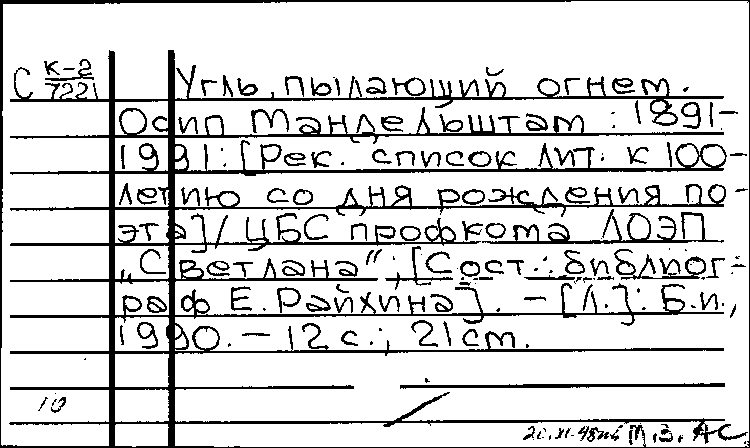 С К-2
7221
Угль, пылающий огнем.
Осип Мандельштам : 1891-
1991: [Рек. список лит. к 100-
летию со дня рождения по-
эта] / ЦБС профкома ЛОЭП
„Светлана“; [Сост.: библиог-
раф Е. Райхина]. – [Л.]: Б.и.,
1990. – 12 с.; 21 см.
10
М.З. АС